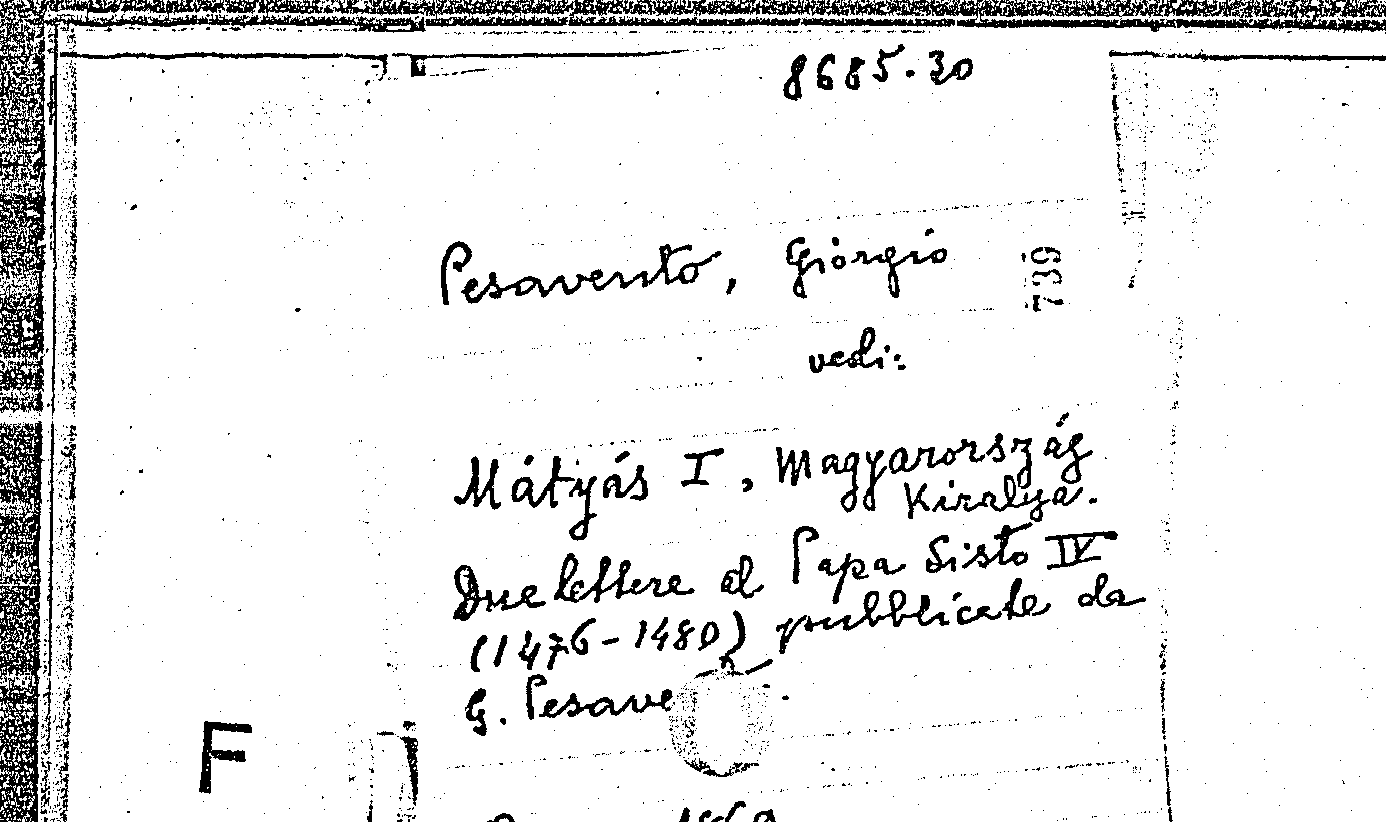 8685.30
Pesavento, Giorgio
739
vedi:
Mátyás I, Magyarország
Kiralya.
Due lettere al Papa Sisto IV
(1476-1480) pubblicate da
G. Pesave
F